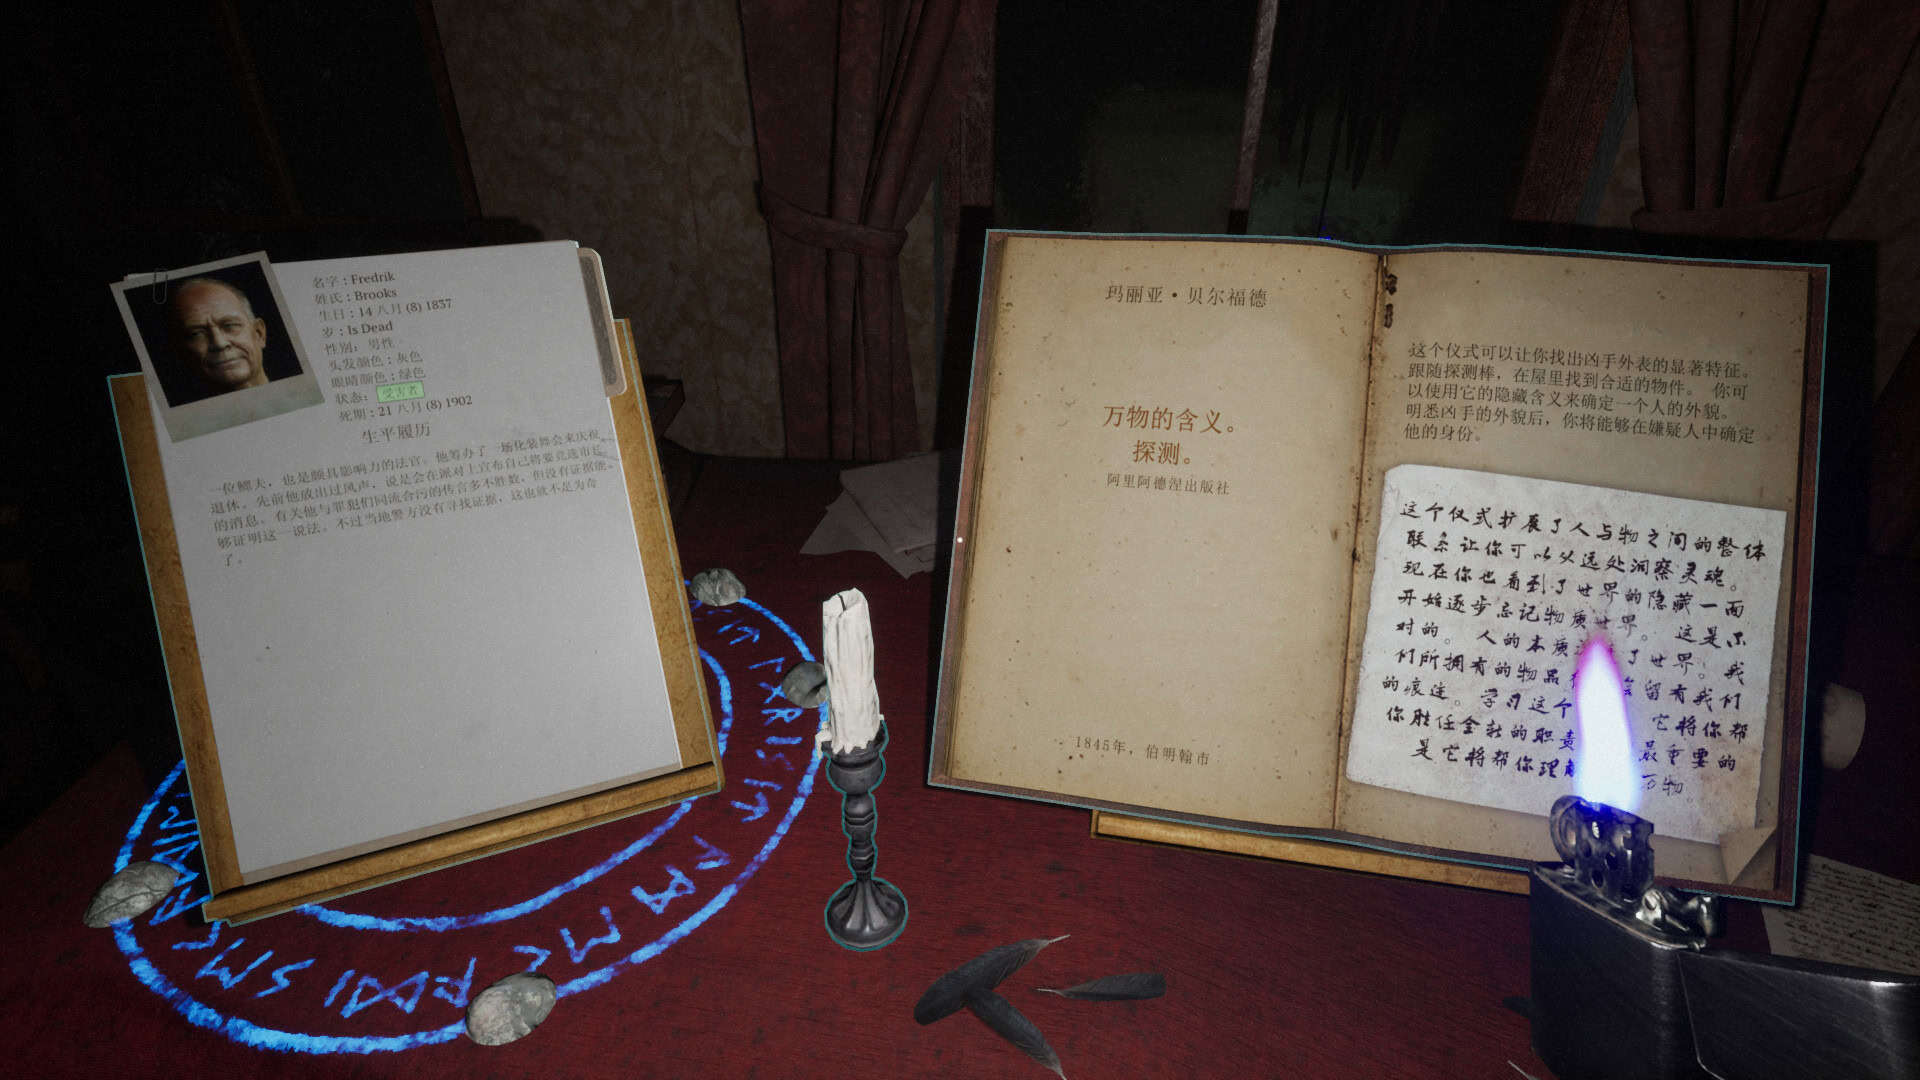 名字：Fredrik
姓氏：Brooks
生日：14 八月 (8) 1837
岁：Is Dead
性别： 男性
头发颜色：灰色
眼睛颜色：绿色
状态： 受害者
死期：21 八月 (8) 1902
生平履历
一位鳏夫，也是颇具影响力的法官。他筹办了一场化装舞会来庆祝
退休。先前他放出过风声，说是会在派对上宣布自己将要竞选市长
的消息。有关他与罪犯们同流合污的传言多不胜数，但没有证据能
够证明这一说法。不过当地警方没有寻找证据，这也就不足为奇
了。
玛丽亚·贝尔福德
万物的含义。
探测。
阿里阿德涅出版社
1845年，伯明翰市
这个仪式可以让你找出凶手外表的显著特征。
跟随探测棒，在屋里找到合适的物件。 你可
以使用它的隐藏含义来确定一个人的外貌。
明悉凶手的外貌后，你将能够在嫌疑人中确定
他的身份。
这个仪式扩展了人与物之间的整体
联系让你可以从远处洞察灵魂。
现在你也看到了世界的隐藏一面
开始逐步忘记物质世界。 这是
对的。 人的本质 了世界！我
们所拥有的物品 留有我们
的痕迹。学习这个 它将你帮
你胜任全新的职责 最重要的
是它将帮你理 万物。